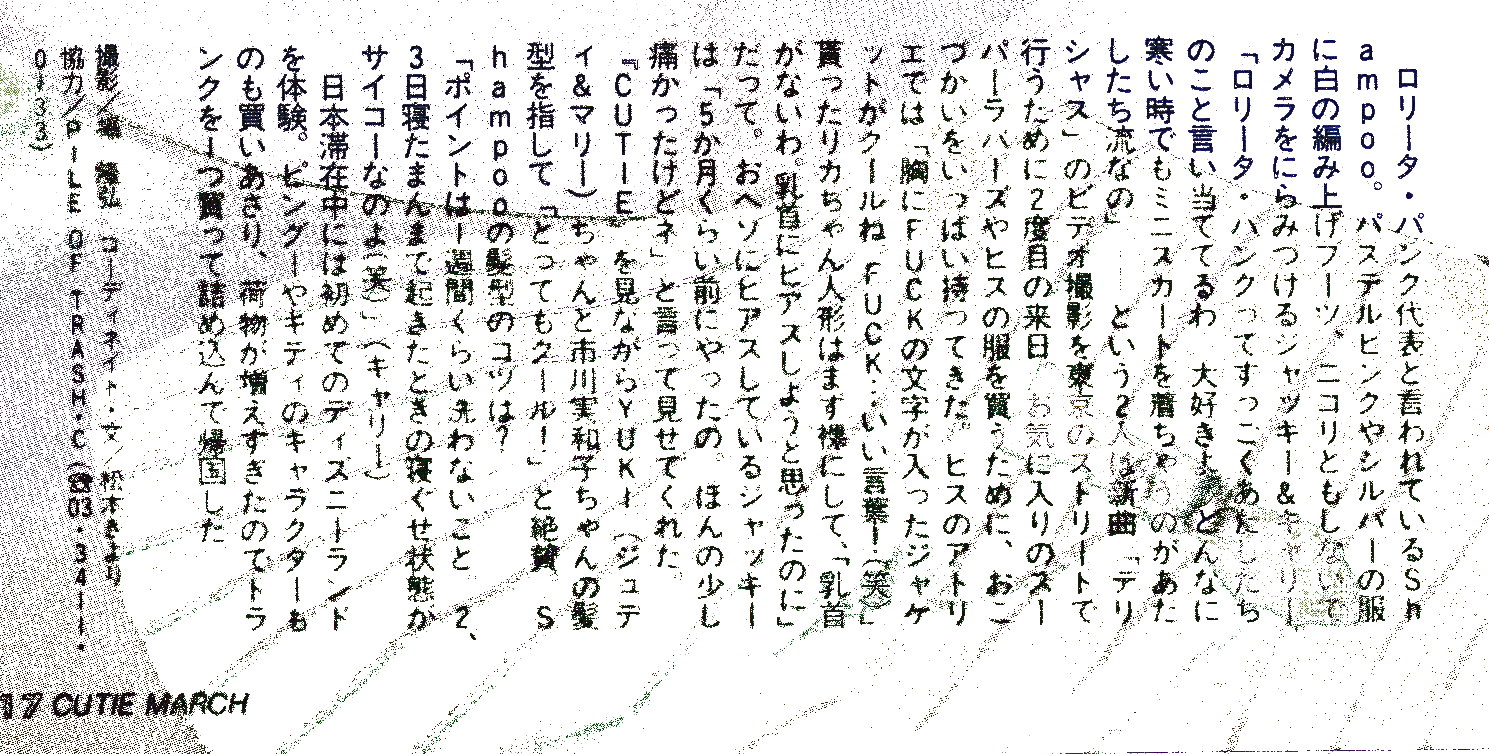 ロリータ・パンク代表と言われているSh
ampoo。パステルピンクやシルバーの服
に白の編み上げブーツ。ニコリともしないで
カメラをにらみつけるジャッキー&キャリー
「ロリータ・パンクってすっごくあたしたち
のこと言い当ててるわ 大好きよ どんなに
寒い時でもミニスカートを着ちゃうのがあた
したち流なの」 という2人は新曲「デリ
シャス」のビデオ撮影を東京のストリートで
行うために2度目の来日 お気に入りのスー
パーラバーズやヒスの服を買うために、おこ
づかいをいっぱい持ってきた。ヒスのアトリ
エでは「胸にFUCKの文字が入ったジャケ
ットがクールね FUCK…いい言葉!(笑)」
貰ったリカちゃん人形はまず裸にして、「乳首
がないわ。乳首にピアスしようと思ったのに」
だって。おヘソにピアスしているジャッキー
は「5か月くらい前にやったの。ほんの少し
痛かったけどネ」と言って見せてくれた
『CUTiE』を見ながらYUKI(ジュデ
ィ&マリー)ちゃんと市川実和子ちゃんの髪
型を指して「とってもクール!」と絶賛 S
hampooの髪型のコツは?
「ポイントは1週間くらい洗わないこと 2、
3日寝たまんまで起きたときの寝ぐせ状態が
サイコーなのよ(笑)」(キャリー)
日本滞在中には初めてのディズニーランド
を体験。ピングーやキティのキャラクターも
のも買いあさり、荷物が増えすぎたのでトラ
ンクを一つ買って詰め込んで帰国した
撮影/ 弘 コーディネイト・文/松木きより
協力/PILE OF TRASH・C(☎03・341・
0133)
17 CUTIE MARCH